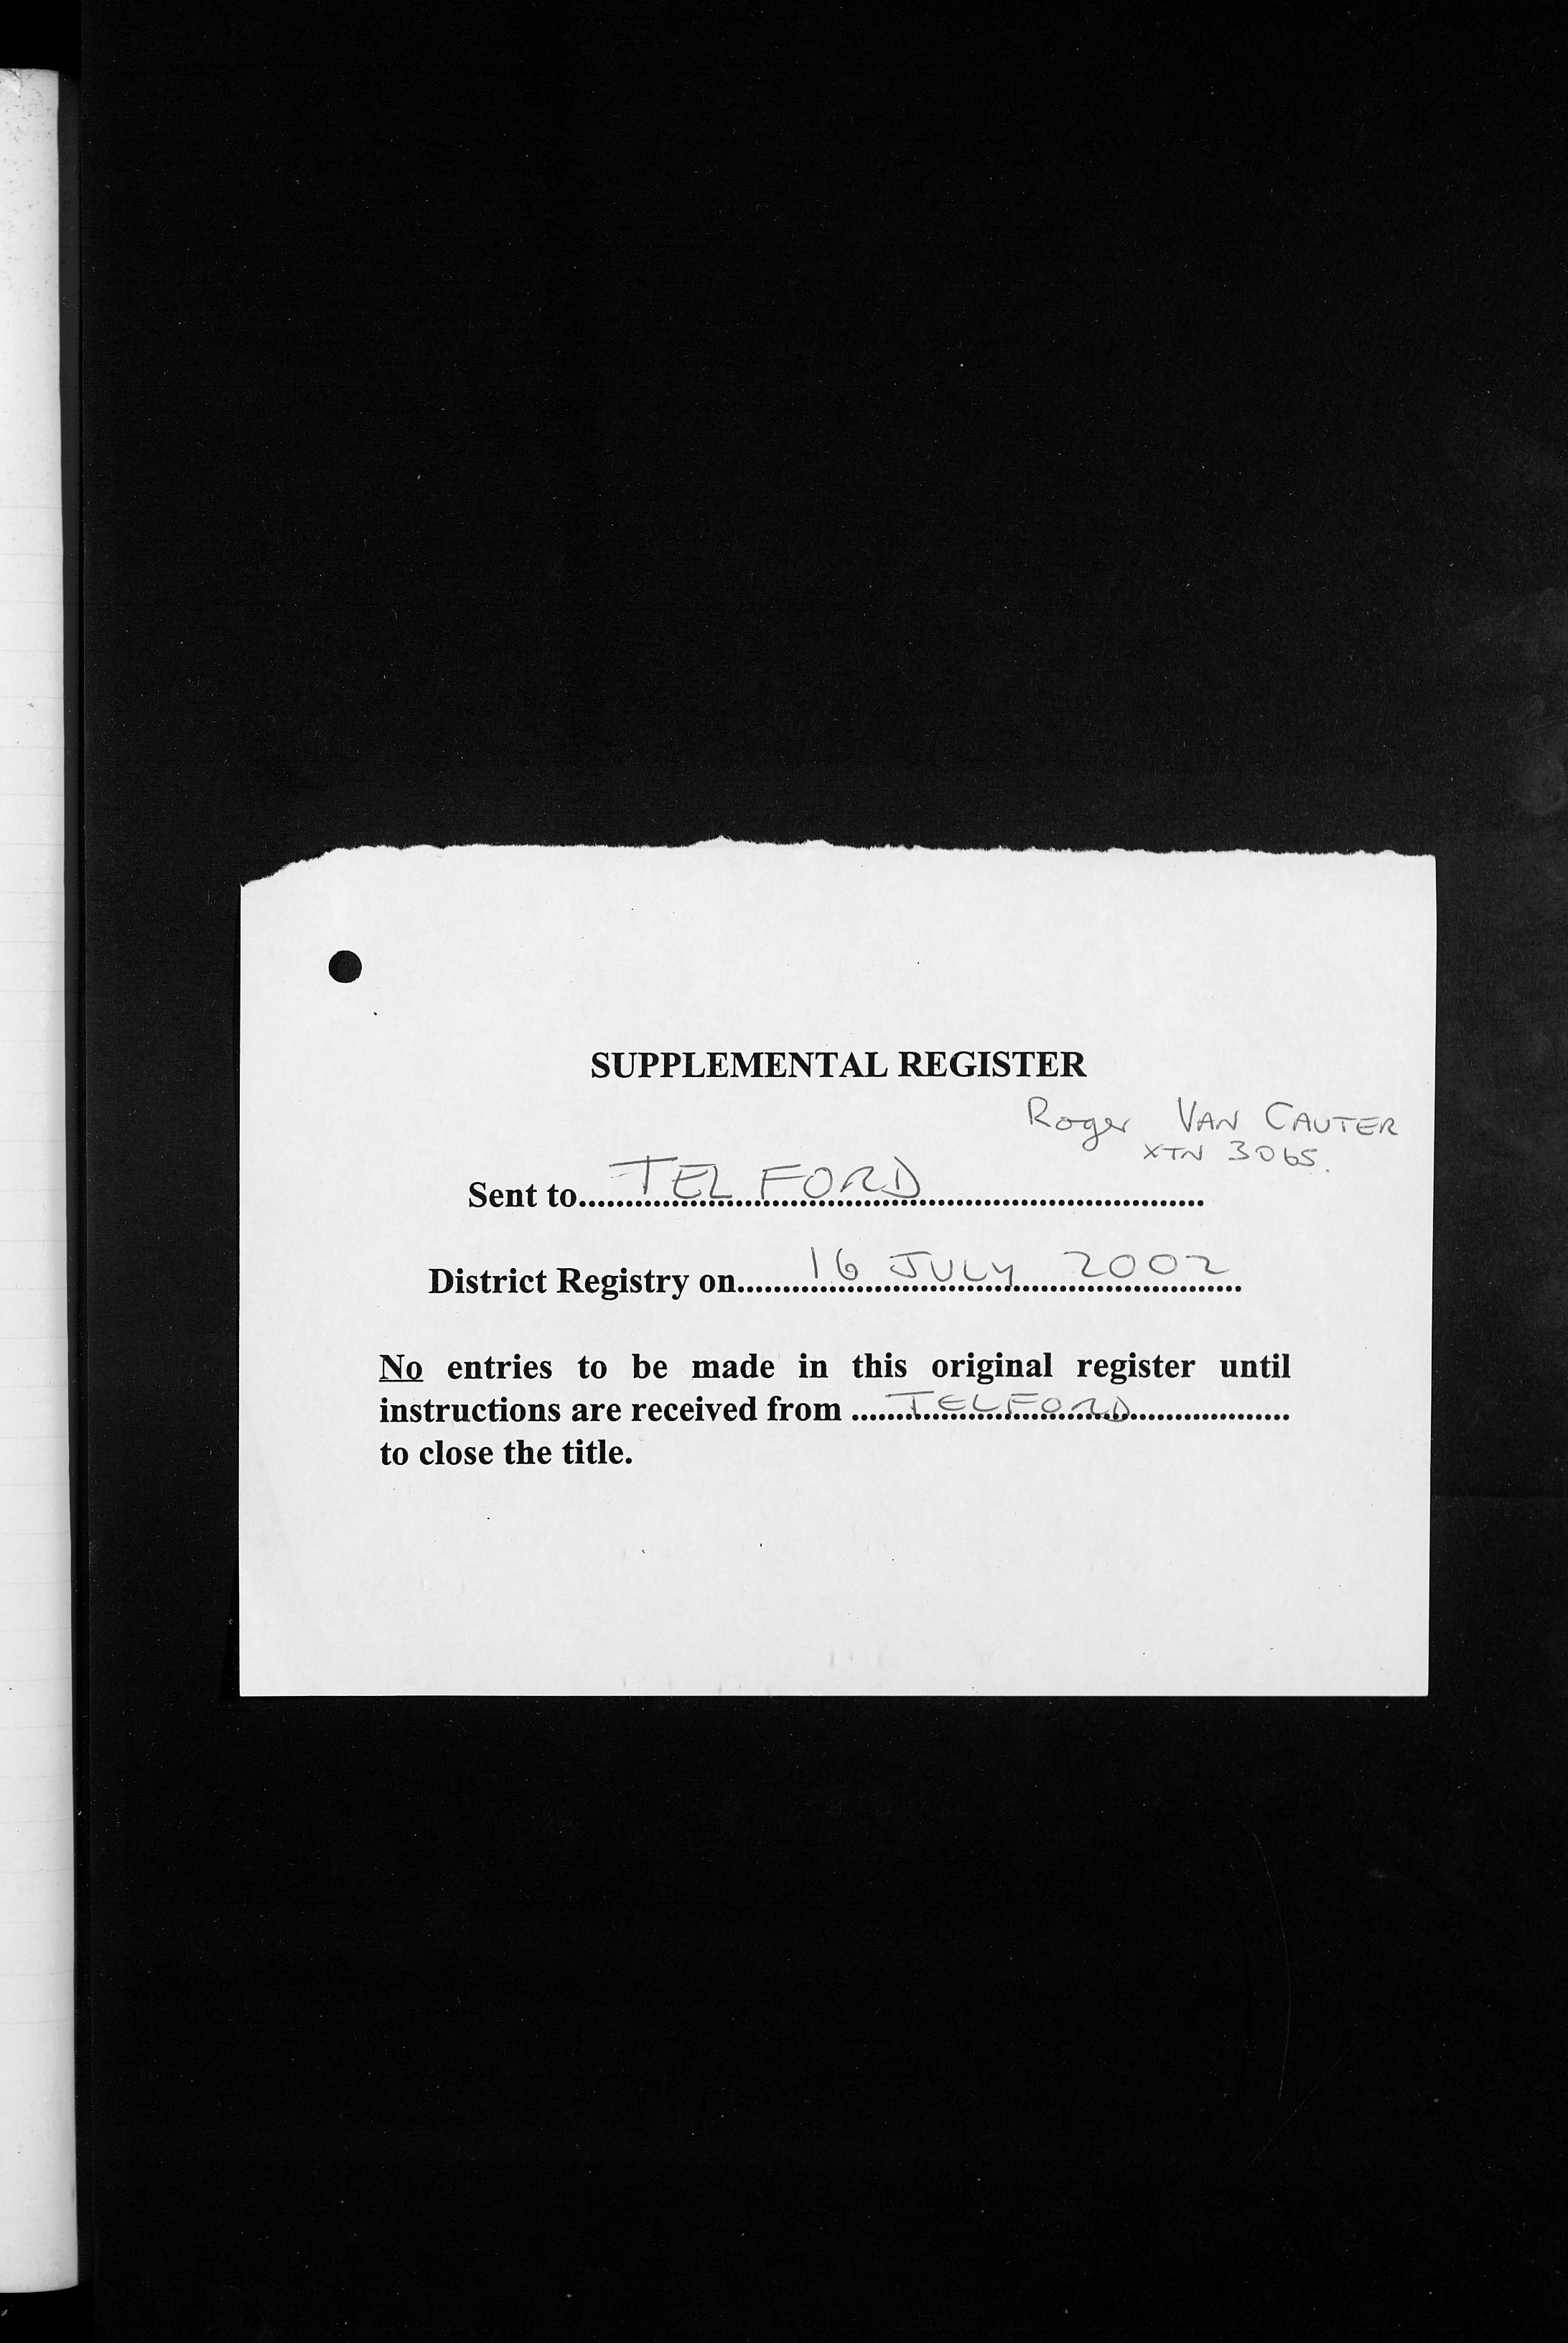 SUPPLEMENTAL REGISTER
Roger VAN CAUTER
XTN 3065.
Sent to..........TELFORD..........
District Registry on..........16 JULY 2002..........
No entries to be made in this original register until
instructions are received from ..........TELFORD..........
to close the title.